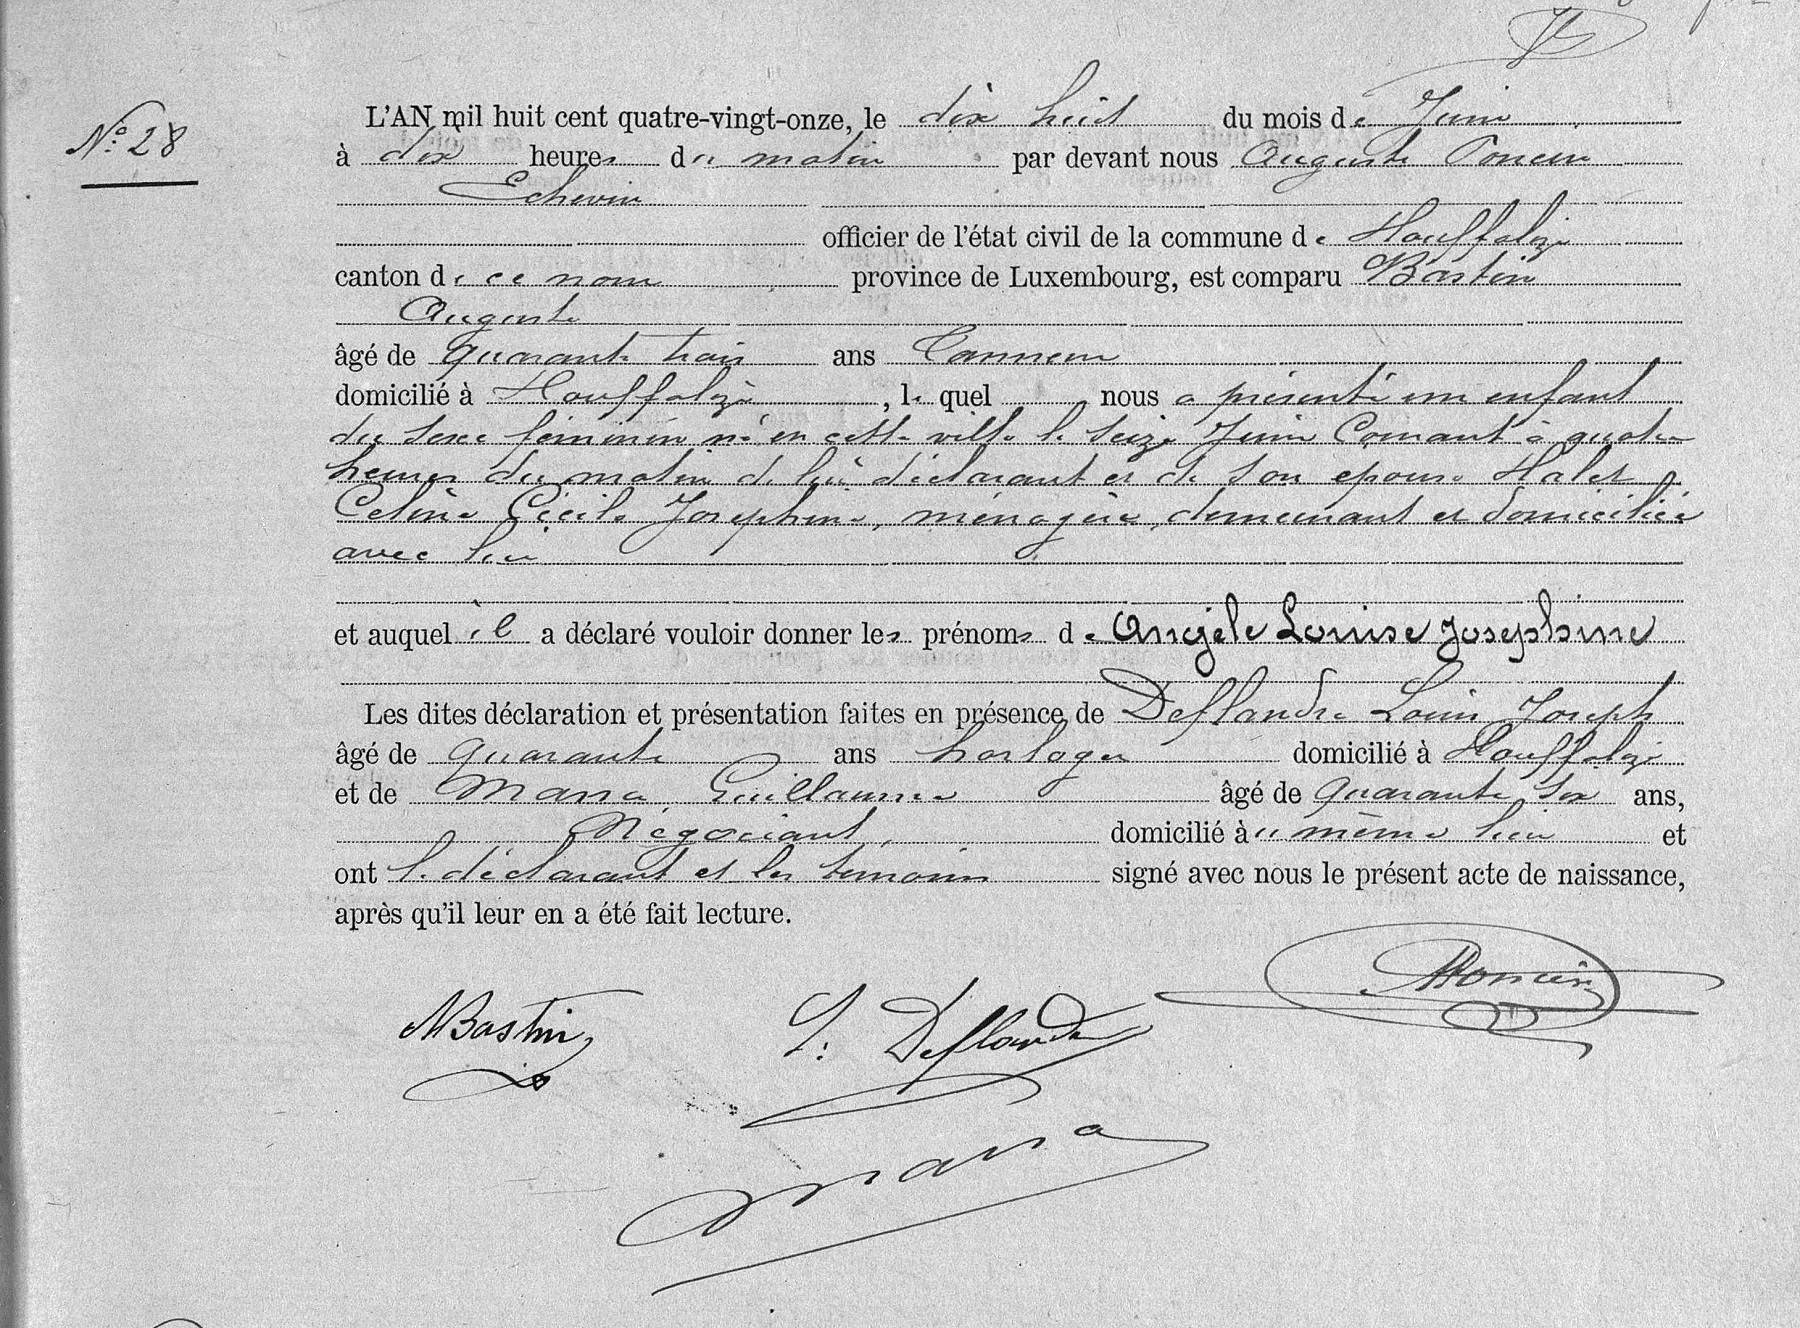 N° 28
L'AN mil huit cent quatre-vingt-onze, le dix huit du mois de Juin
à dix heures du matin par devant nous Auguste Poncin
Echevin
officier de l'état civil de la commune de Houffalize
canton de ce nom province de Luxembourg, est comparu Bastin
Auguste
âgé de quarante trois ans Tanneur
domicilié à Houffalize, lequel nous a présenté un enfant
du sexe féminin né en cette ville le seize Juin Courant à quatre
heures du matin de lui déclarant et de son épouse Halet
Celine Cécile Josephine, ménagère, demeurant et domiciliée
avec lui
et auquel il a déclaré vouloir donner les prénoms de Angèle Louise Josephine
Les dites déclaration et présentation faites en présence de Deflandre Louis Joseph
âgé de quarante ans horloger domicilié à Houffalize
et de Massa Guillaume âgé de quarante six ans,
Négociant, domicilié au même lieu et
ont le déclarant et les témoins signé avec nous le présent acte de naissance,
après qu'il leur en a été fait lecture.
ABastin
L. Deflandre
APoncin
Massa